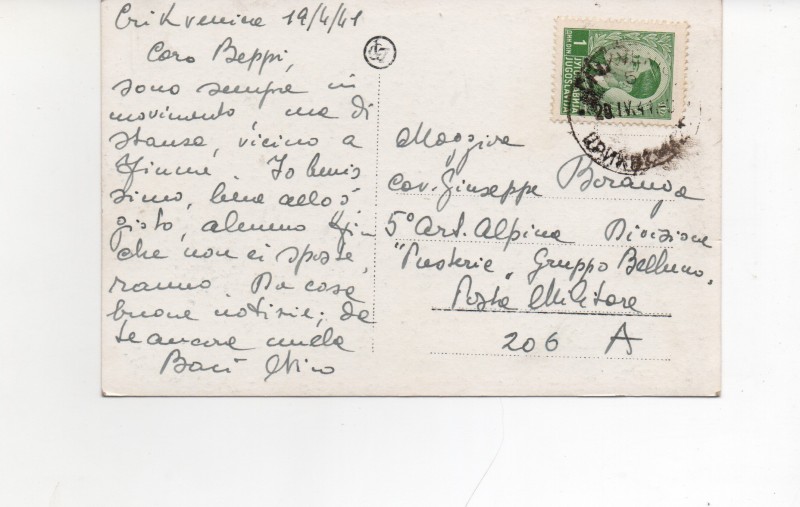 Crikvenica 19/4/41
Caro Beppi,
sono sempre in
movimento, ma di
stanza, vicino a
Fiume. Io benis
simo, bene allog
gisto, alemno fin
che non ci sposte
ranno. Da casa
buone notizie; da
te ancora nulla
Baci Nino
1
ДИН DIN
ЈУГОСЛАВИЈА
JUGOSLAVIJA
20 IV.41
Maggiore
Cav. Giuseppe Boranga
5° Art. Alpina Divisione
"Pusterie" Gruppo Belluno.
Posta Militare
206 A